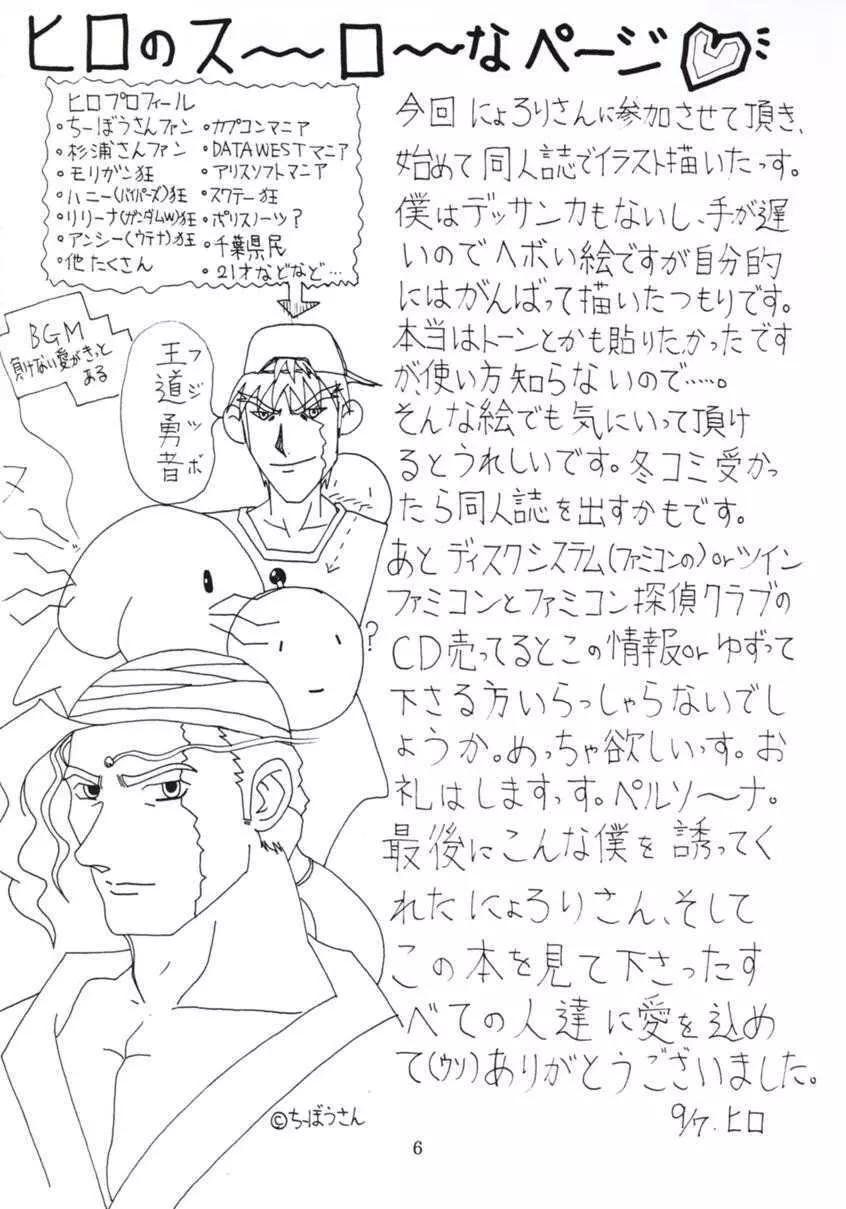 ヒロのス〜〜ロ〜〜なページ
ヒロプロフィール
・ちーぼうさんファン
・杉浦さんファン
・モリガン狂
・ハニー(バイパーズ)狂
・リリーナ(ガンダムW)狂
・アンシー(ウテナ)狂
・他たくさん
・カプコンマニア
・DATAWESTマニア
・アリスソフトマニア
・スクデー狂
・ポリスノーツ?
・千葉県民
・21才などなど…
BGM
負けない愛がきっと
ある
王道勇者
フジツボ
ヌ
?
今回にょろりさんに参加させて頂き、
始めて同人誌でイラスト描いたっす。
僕はデッサン力もないし、手が遅
いのでヘボい絵ですが自分的
にはがんばって描いたつもりです。
本当はトーンとかも貼りたかったです
が、使い方知らないので……。
そんな絵でも気にいって頂け
るとうれしいです。冬コミ受かっ
たら同人誌を出すかもです。
あとディスクシステム(ファミコンの)orツイン
ファミコンとファミコン探偵クラブの
CD売ってるとこの情報orゆずって
下さる方いらっしゃらないでし
ょうか。めっちゃ欲しいっす。お
礼はしますっす。ペルソ〜ナ。
最後にこんな僕を誘ってく
れたにょろりさん、そして
この本を見て下さったす
べての人達に愛を込め
て(ウソ)ありがとうございました。
9/7.ヒロ
©ちーぼうさん
6